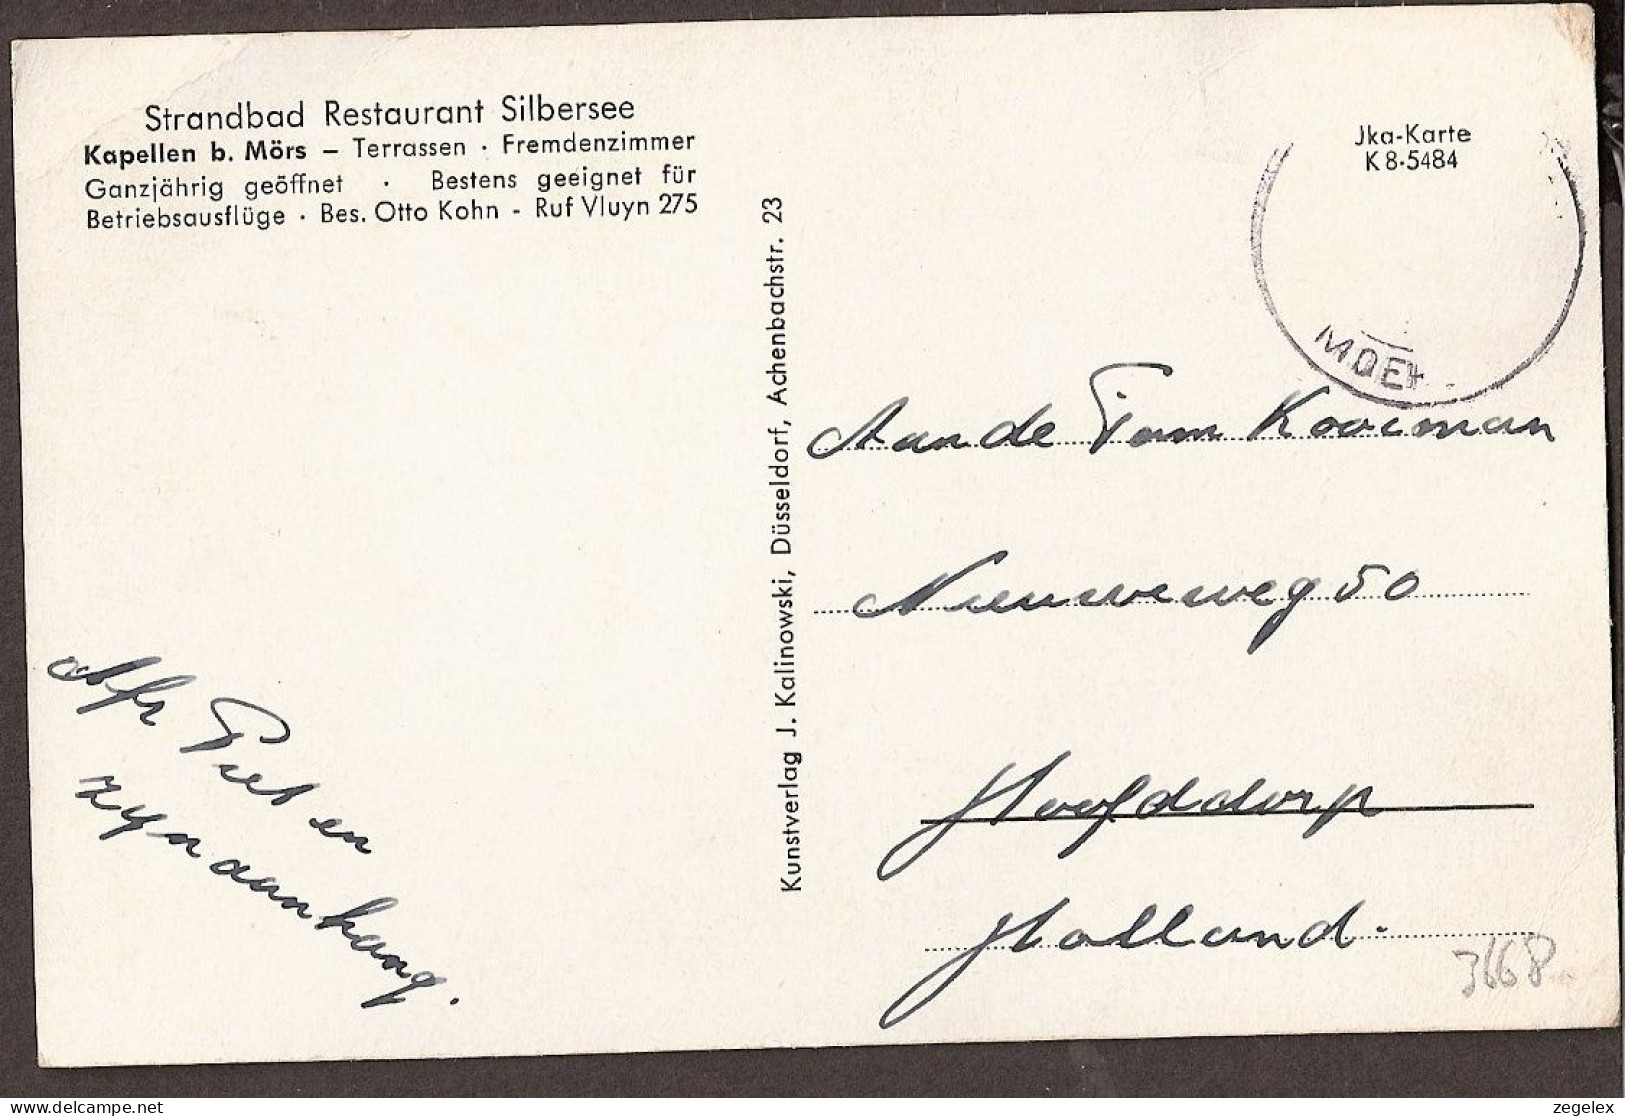 Strandbad Restaurant Silbersee
Kapellen b. Mörs – Terrassen · Fremdenzimmer
Ganzjährig geöffnet · Bestens geeignet für
Betriebsausflüge · Bes. Otto Kohn - Ruf Vluyn 275
Kunstverlag J. Kalinowski, Düsseldorf, Achenbachstr. 23
Jka-Karte
K 8·5484
MOE
Aan de Fam Kooiman
Nieuweweg 50
Hoofddorp
Holland.
Afz Piet en
zyn aanhang.
3668
zegelex